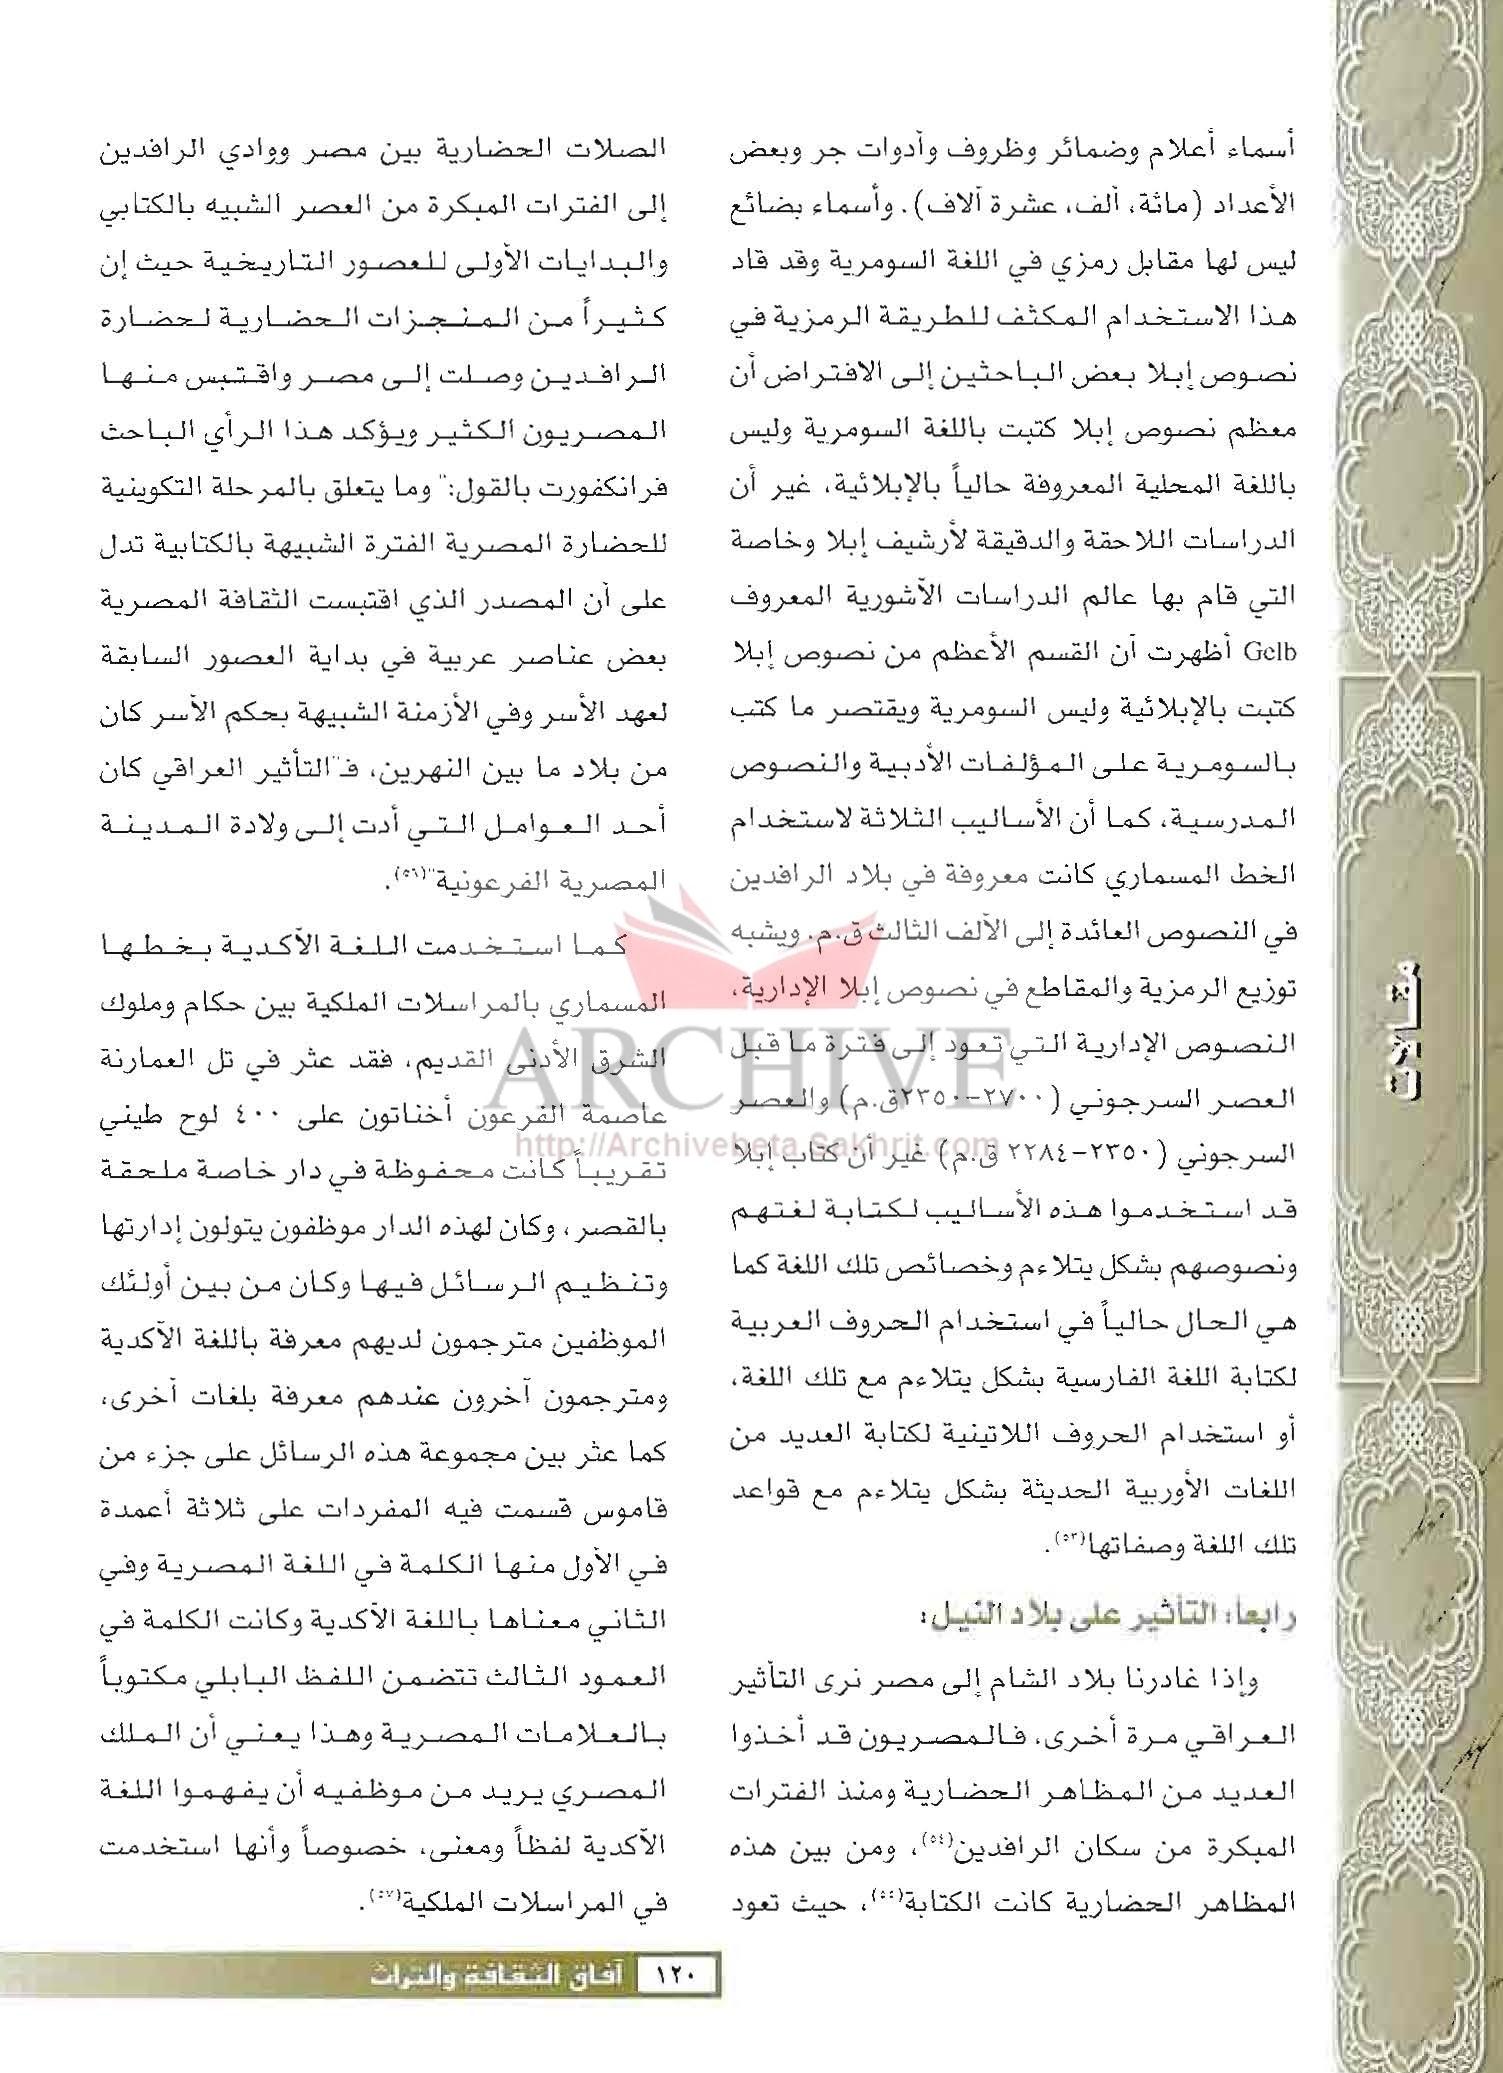 أسماء أعلام وضمائر وظروف وأدوات جر وبعض
الأعداد (مائة، ألف، عشرة آلاف). وأسماء بضائع
ليس لها مقابل رمزي في اللغة السومرية وقد قاد
هذا الاستخدام المكثف للطريقة الرمزية في
نصوص إبلا بعض الباحثين إلى الافتراض أن
معظم نصوص إبلا كتبت باللغة السومرية وليس
باللغة المحلية المعروفة حالياً بالإبلائية، غير أن
الدراسات اللاحقة والدقيقة لأرشيف إبلا وخاصة
التي قام بها عالم الدراسات الآشورية المعروف
Gelb أظهرت أن القسم الأعظم من نصوص إبلا
كتبت بالإبلائية وليس السومرية ويقتصر ما كتب
بالسومرية على المؤلفات الأدبية والنصوص
المدرسية، كما أن الأساليب الثلاثة لاستخدام
الخط المسماري كانت معروفة في بلاد الرافدين
في النصوص العائدة إلى الألف الثالث ق.م. ويشبه
توزيع الرمزية والمقاطع في نصوص إبلا الإدارية،
النصوص الإدارية التي تعود إلى فترة ما قبل
العصر السرجوني (٢٧٠٠-٢٣٥٠ق.م) والعصر
السرجوني (٢٣٥٠-٢٢٨٤ ق.م) غير أن كتاب إبلا
قد استخدموا هذه الأساليب لكتابة لغتهم
ونصوصهم بشكل يتلاءم وخصائص تلك اللغة كما
هي الحال حالياً في استخدام الحروف العربية
لكتابة اللغة الفارسية بشكل يتلاءم مع تلك اللغة،
أو استخدام الحروف اللاتينية لكتابة العديد من
اللغات الأوربية الحديثة بشكل يتلاءم مع قواعد
تلك اللغة وصفاتها(٥٣).
رابعا: التأثير على بلاد النيل:
وإذا غادرنا بلاد الشام إلى مصر نرى التأثير
العراقي مرة أخرى، فالمصريون قد أخذوا
العديد من المظاهر الحضارية ومنذ الفترات
المبكرة من سكان الرافدين(٥٤)، ومن بين هذه
المظاهر الحضارية كانت الكتابة(٥٥)، حيث تعود
الصلات الحضارية بين مصر ووادي الرافدين
إلى الفترات المبكرة من العصر الشبيه بالكتابي
والبدايات الأولى للعصور التاريخية حيث إن
كثيراً من المنجزات الحضارية لحضارة
الرافدين وصلت إلى مصر واقتبس منها
المصريون الكثير ويؤكد هذا الرأي الباحث
فرانكفورت بالقول:" وما يتعلق بالمرحلة التكوينية
للحضارة المصرية الفترة الشبيهة بالكتابية تدل
على أن المصدر الذي اقتبست الثقافة المصرية
بعض عناصر عربية في بداية العصور السابقة
لعهد الأسر وفي الأزمنة الشبيهة بحكم الأسر كان
من بلاد ما بين النهرين، فـ"التأثير العراقي كان
أحد العوامل التي أدت إلى ولادة المدينة
المصرية الفرعونية"(٥٦).
كما استخدمت اللغة الأكدية بخطها
المسماري بالمراسلات الملكية بين حكام وملوك
الشرق الأدنى القديم، فقد عثر في تل العمارنة
عاصمة الفرعون أخناتون على ٤٠٠ لوح طيني
تقريباً كانت محفوظة في دار خاصة ملحقة
بالقصر، وكان لهذه الدار موظفون يتولون إدارتها
وتنظيم الرسائل فيها وكان من بين أولئك
الموظفين مترجمون لديهم معرفة باللغة الأكدية
ومترجمون آخرون عندهم معرفة بلغات أخرى،
كما عثر بين مجموعة هذه الرسائل على جزء من
قاموس قسمت فيه المفردات على ثلاثة أعمدة
في الأول منها الكلمة في اللغة المصرية وفي
الثاني معناها باللغة الأكدية وكانت الكلمة في
العمود الثالث تتضمن اللفظ البابلي مكتوباً
بالعلامات المصرية وهذا يعني أن الملك
المصري يريد من موظفيه أن يفهموا اللغة
الأكدية لفظاً ومعنى، خصوصاً وأنها استخدمت
في المراسلات الملكية(٥٧).
مقالات
ARCHIVE
http://Archivebeta.Sakhrit.com
١٢٠ آفاق الثقافة والتراث